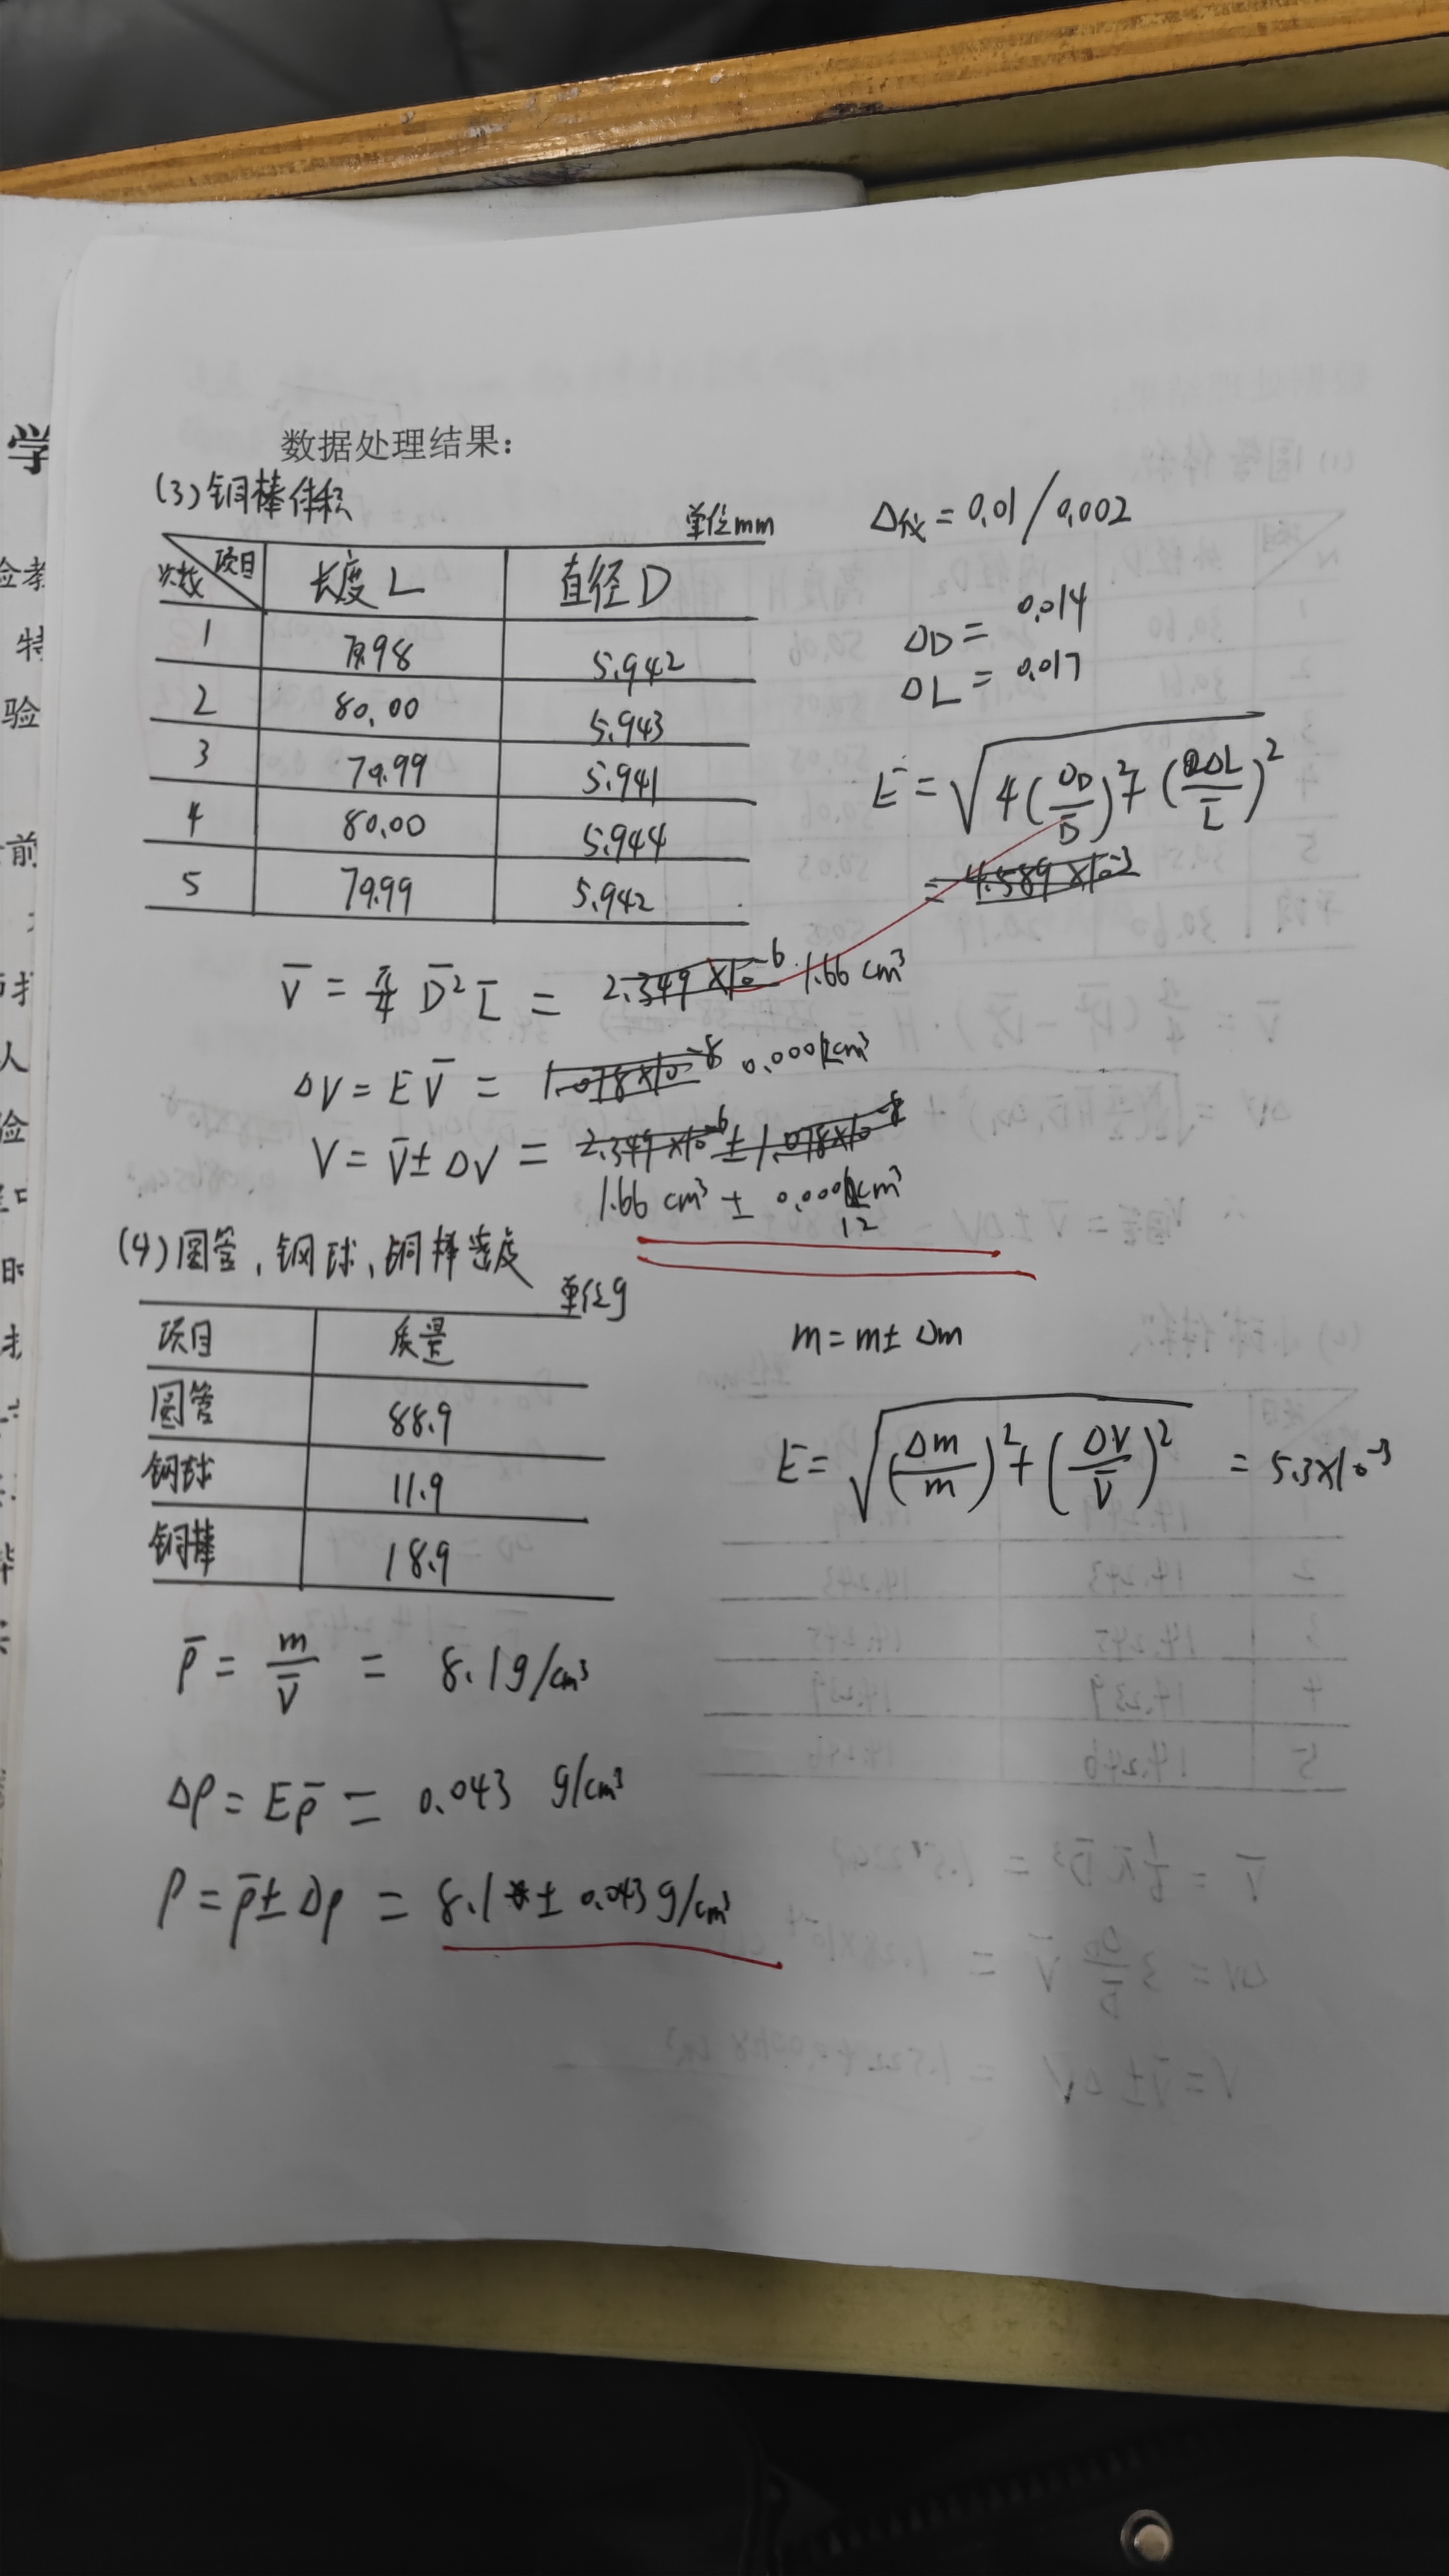 数据处理结果：
(3) 铜棒体积
单位mm
Δ仪 = 0.01 / 0.002
次数 项目 长度 L 直径 D
1 79.98 5.942
2 80.00 5.943
3 79.99 5.941
4 80.00 5.944
5 79.99 5.942
ΔD = 0.014
ΔL = 0.017
E = √(4(ΔD/D̄)² + (ΔL/L̄)²)
= 4.589×10⁻³
V̄ = π/4 D̄² L̄ = 2.349×10⁻⁶ 1.66 cm³
ΔV = E V̄ = 1.078×10⁻⁸ 0.0001 cm³
V = V̄ ± ΔV = 2.349×10⁻⁶ ± 1.078×10⁻⁸
1.66 cm³ ± 0.000 cm³
12
(4) 圆管，钢球，铜棒密度
单位g
项目 质量
圆管 88.9
钢球 11.9
铜棒 18.9
m = m ± Δm
E = √((Δm/m)² + (ΔV/V̄)²) = 5.3×10⁻³
ρ̄ = m/V̄ = 8.1 g/cm³
Δρ = E ρ̄ = 0.043 g/cm³
ρ = ρ̄ ± Δρ = 8.1 ± 0.043 g/cm³
学
特
验
前
人
验